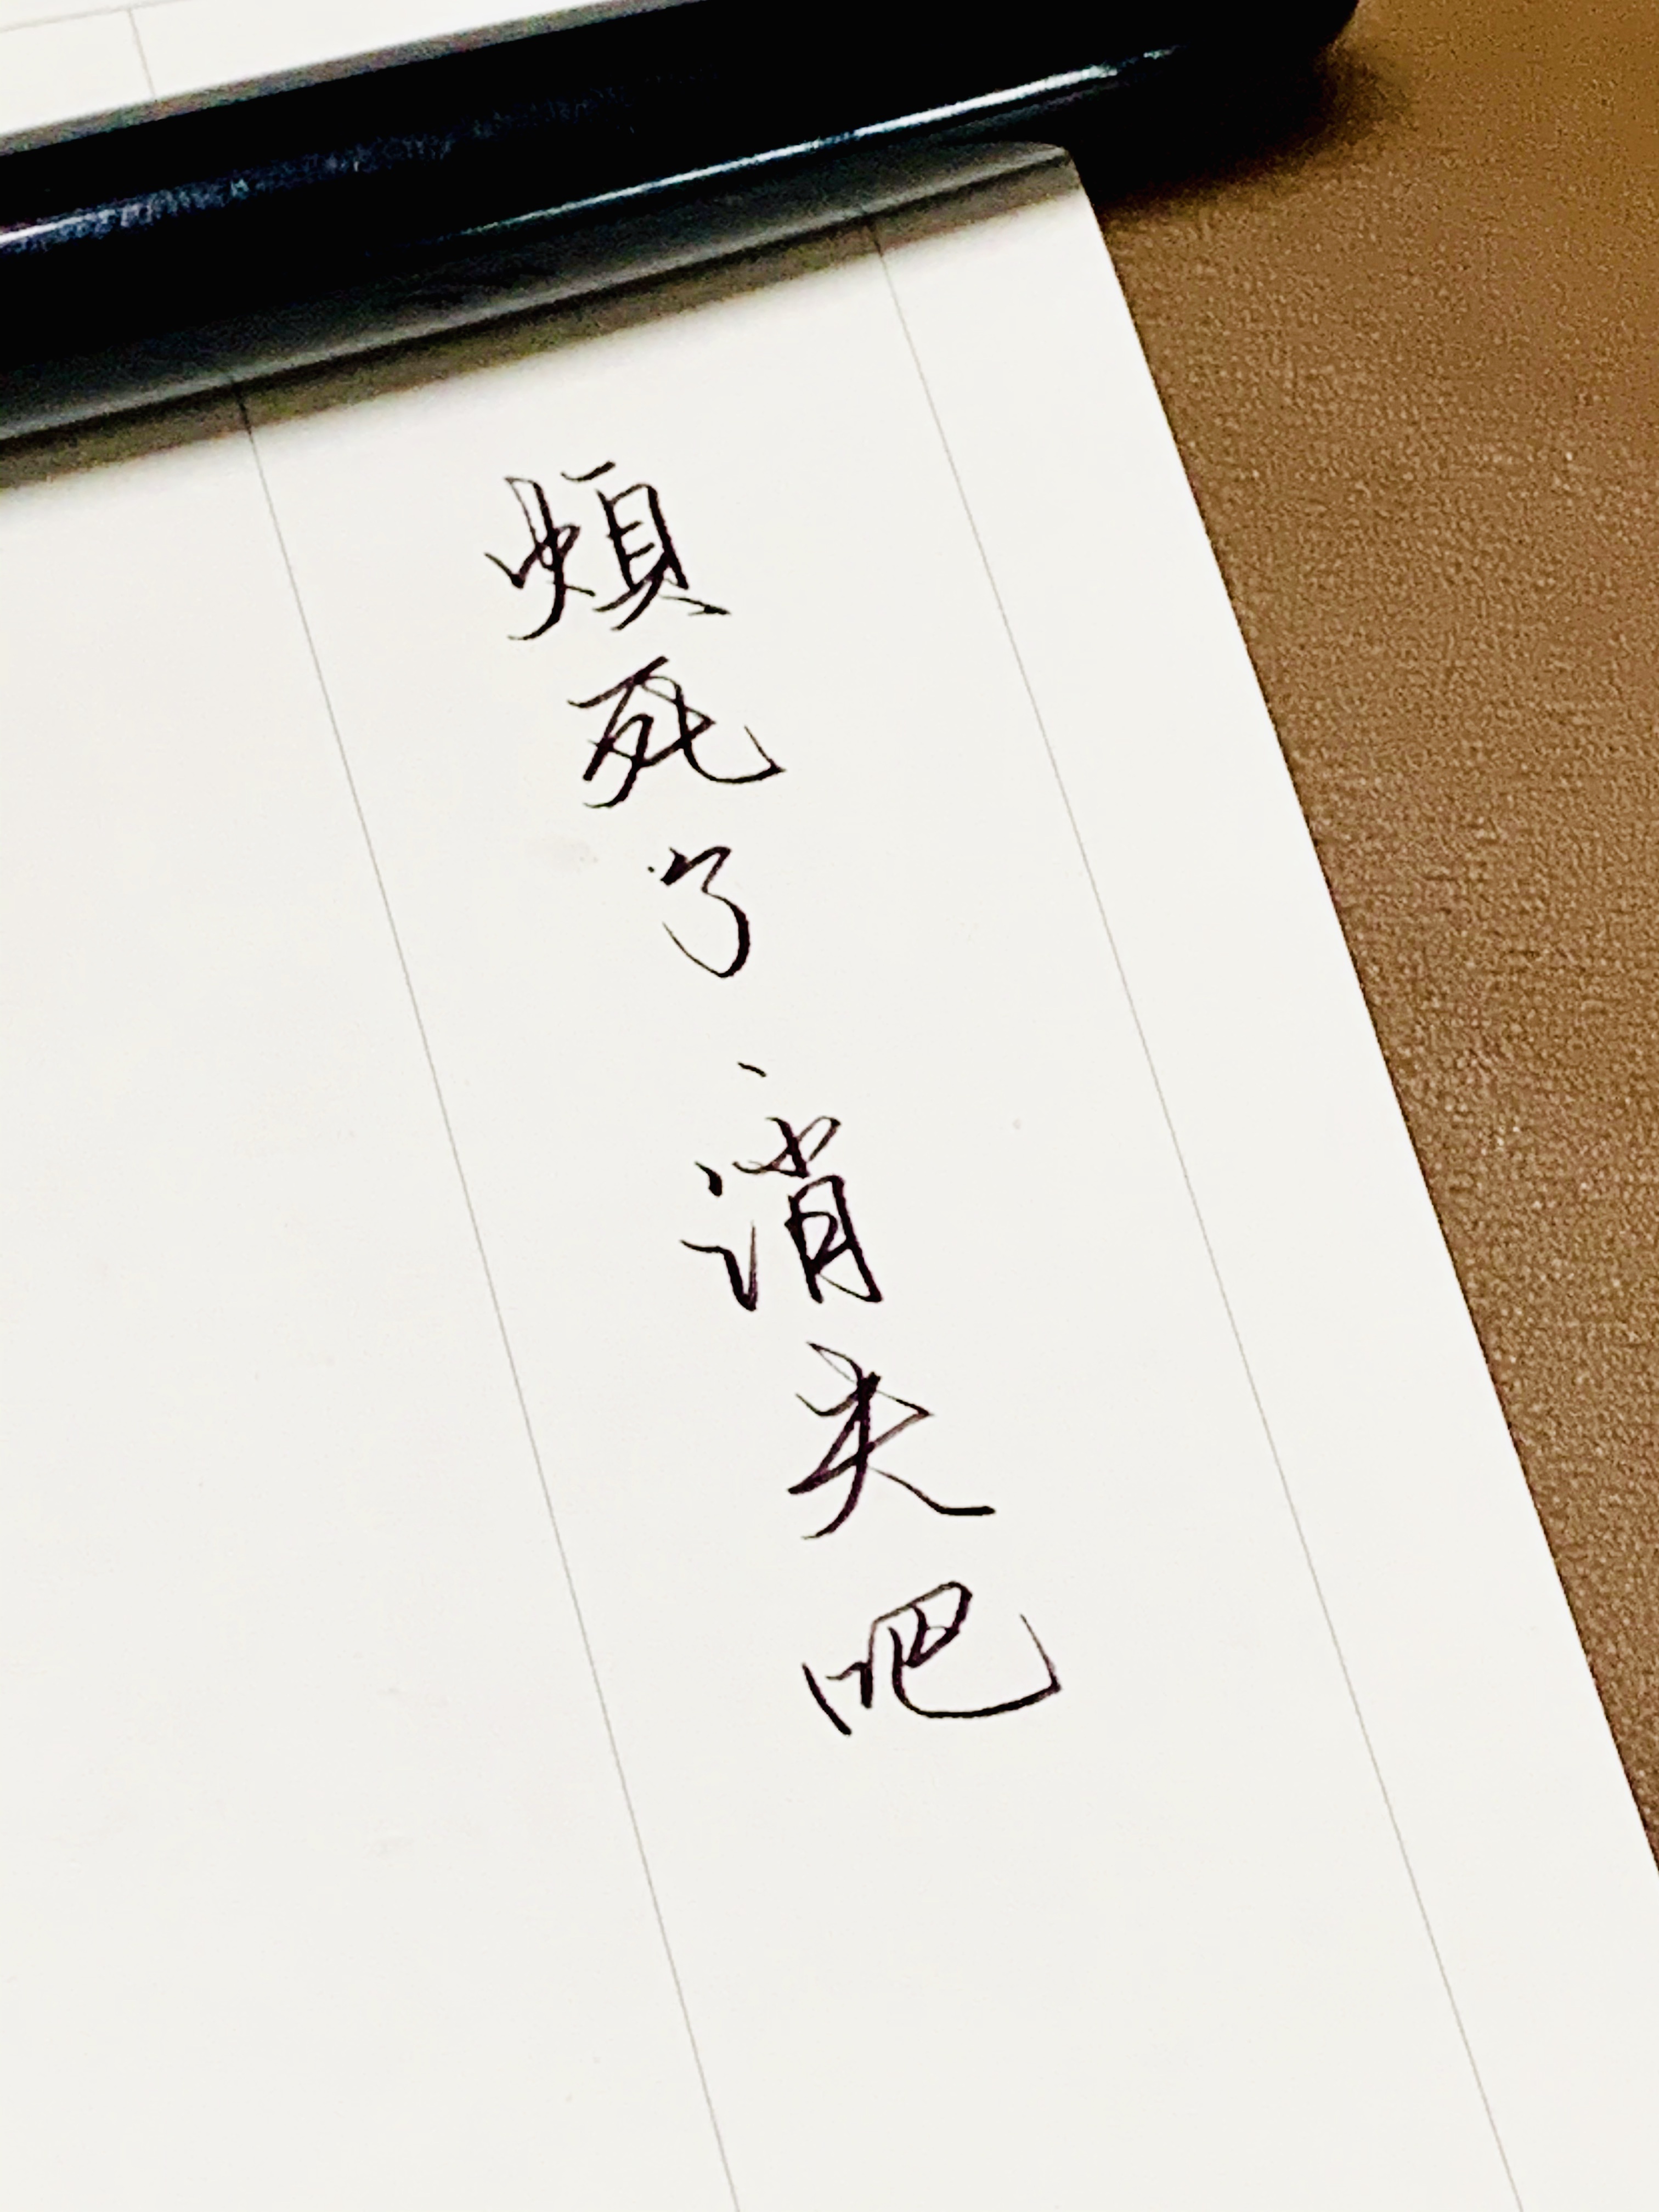 煩死了、消失吧